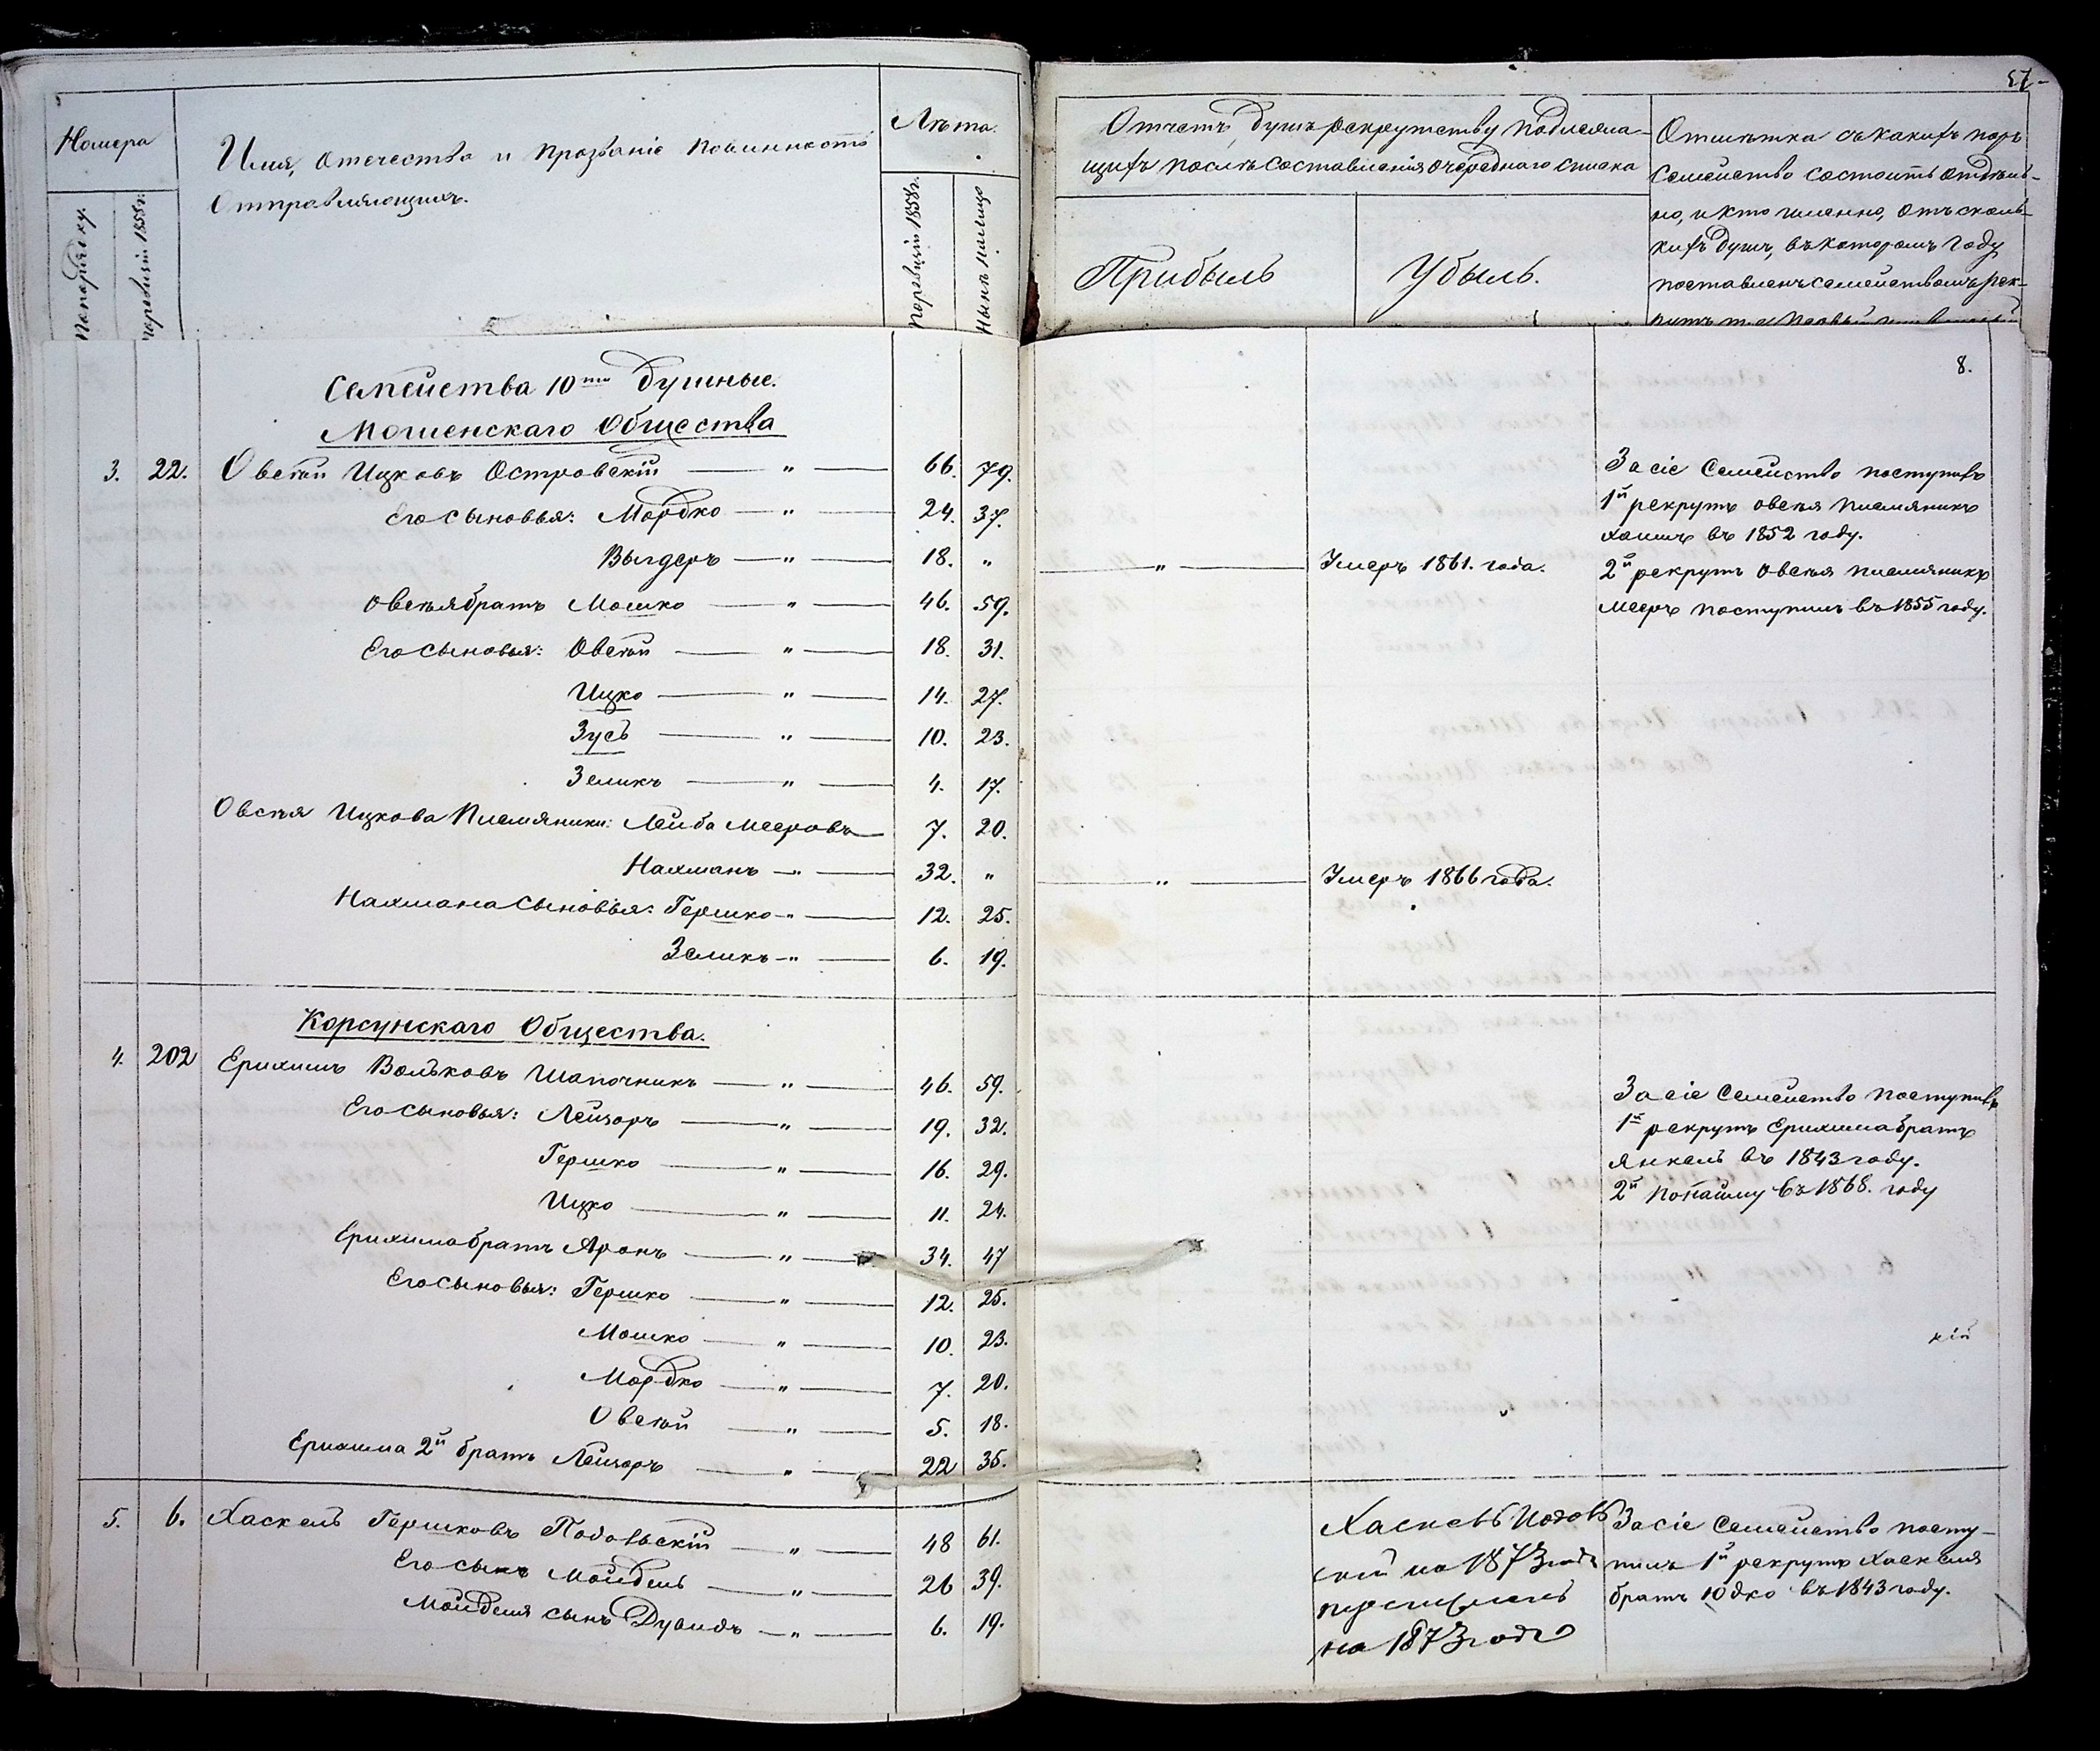 57
Номера
Имя, отечество и прозваніе повинность
отправляющихъ.
Лѣта.
По порядку.
По ревизіи 1858 г.
По ревизіи 1858 г.
Нынѣ налицо
Отчетъ, душъ рекрутству подлежа-
щихъ послѣ составленія очереднаго списка
Прибыль
Убыль.
Отмѣтка съ какихъ поръ
семейство состоитъ отдѣль-
но, и кто именно, отъ сколь-
кихъ душъ, въ которомъ году
поставленъ семействомъ рек-
8.
Семейства 10ти душные.
Мошенскаго Общества
3. 22. Овсѣй Ицковъ Островскій — " — 66. 79.
Его сыновья: Мордко — " — 24. 37.
Выгдеръ — " — 18. " — " — Умеръ 1861. года.
Овсѣя братъ Мошко — " — 46. 59.
Его сыновья: Овсѣй — " — 18. 31.
Ицко — " — 14. 27.
Зусь — " — 10. 23.
Зеликъ — " — 4. 17.
Овсѣя Ицкова Племяники: Лейба Мееровъ — 7. 20.
Нахманъ — " — 32. " — " — Умеръ 1866 года.
Нахмана сыновья: Гершко - " — 12. 25.
Зеликъ - " — 6. 19.
За сіе Семейство поступилъ
1й рекрутъ Овсѣя племяникъ
Хаимъ въ 1852 году.
2й рекрутъ Овсѣя племяникъ
Мееръ поступилъ въ 1855 году.
Корсунскаго Общества.
4. 202 Ерихимъ Вольковъ Шапочникъ — " — 46. 59.
Его сыновья: Лейзоръ — " — 19. 32.
Гершко — " — 16. 29.
Ицко — " — 11. 24.
Ерихима братъ Аронъ — " — 34. 47
Его сыновья: Гершко — " — 12. 25.
Мошко — " — 10. 23.
Мордко — " — 7. 20.
Овсѣй — " — 5. 18.
Ерихима 2й братъ Лейзоръ — " — 22 35.
За сіе Семейство поступилъ
1й рекрутъ Ерихима братъ
Янкель въ 1843 году.
2й по найму въ 1868. году
кій
5. 6. Хаскель Гершковъ Подольскій — " — 48 61.
Его сынъ Мойдель — " — 26 39.
Мойделя сынъ Дувидъ — " — 6. 19.
Хаскель Подоль
скій на 1873 годъ
на 1873 годъ
За сіе Семейство посту-
пилъ 1й рекрутъ Хаскеля
братъ Юдко въ 1843 году.